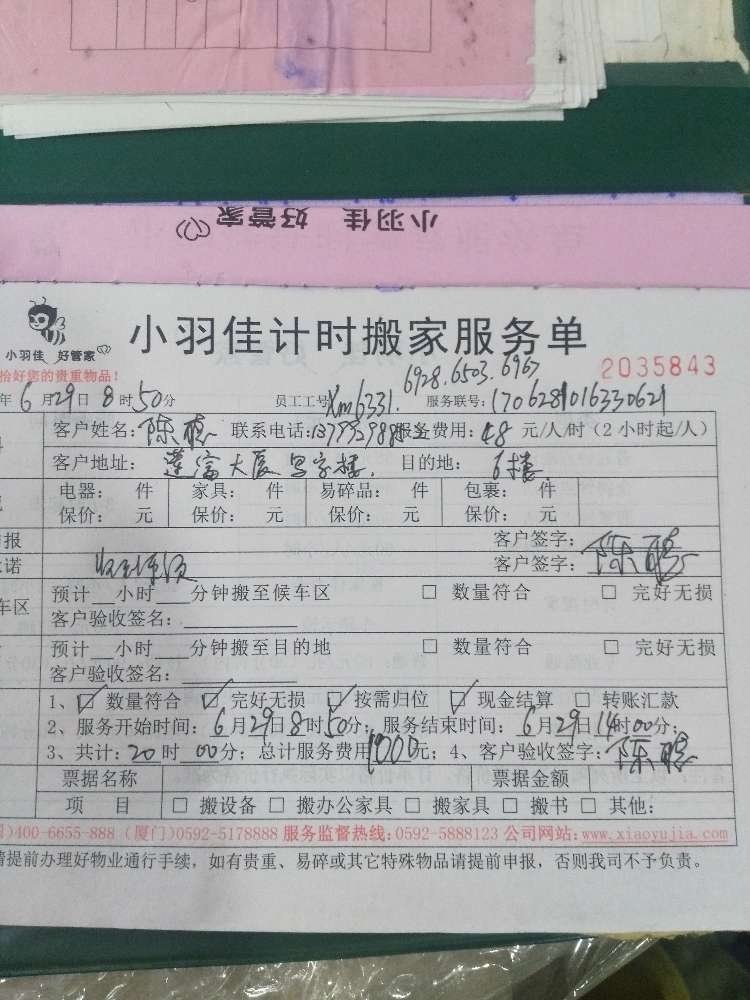 小羽佳 好管家
小羽佳 好管家
小羽佳计时搬家服务单
2035843
拾好您的贵重物品!
6928.6503.6967
年6月29日8时50分 员工工号:Xm6331. 服务联号:170628101633 0621
客户姓名:陈聪 联系电话: 服务费用:48元/人/时(2小时起/人)
客户地址:莲富大厦写字楼. 目的地:6楼
电器: 件 家具: 件 易碎品: 件 包裹: 件
保价: 元 保价: 元 保价: 元 保价: 元
申报 客户签字:
诺 客户签字:陈聪
预计 小时 分钟搬至候车区 □ 数量符合 □ 完好无损
车区
客户验收签名:
预计 小时 分钟搬至目的地 □ 数量符合 □ 完好无损
客户验收签名:
1、☑ 数量符合 ☑ 完好无损 ☑ 按需归位 ☑ 现金结算 □ 转账汇款
2、服务开始时间:6月29日8时50分;服务结束时间:6月29日14时00分;
3、共计:20时00分;总计服务费用1000元;4、客户验收签字:陈聪
票据名称 票据金额
项 目 □ 搬设备 □ 搬办公家具 □ 搬家具 □ 搬书 □ 其他:
)400-6655-888(厦门)0592-5178888 服务监督热线:0592-5888123 公司网站:www.xiaoyujia.com
请提前办理好物业通行手续,如有贵重、易碎或其它特殊物品请提前申报,否则我司不予负责。